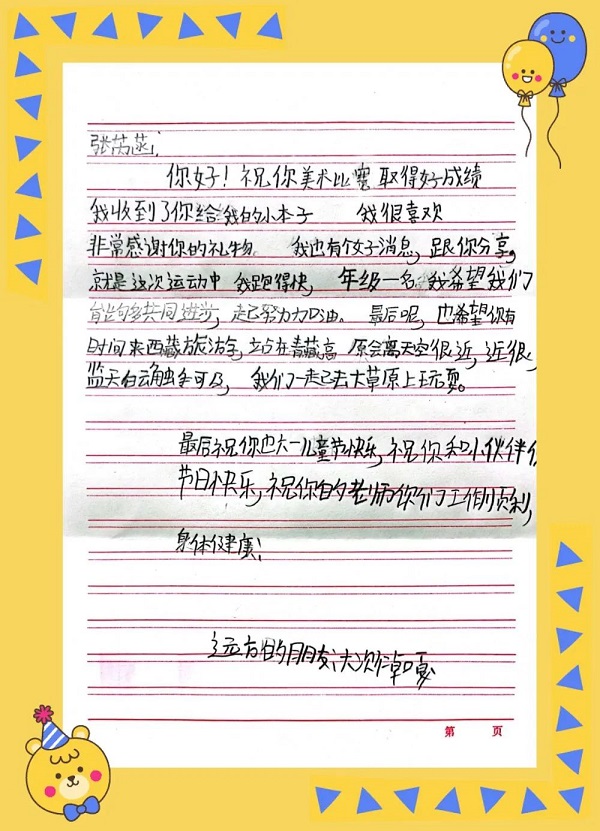 张芮菡:
你好！祝你美术比赛取得好成绩
我收到了你给我的小本子 我很喜欢
非常感谢你的礼物。 我也有个好消息，跟你分享，
就是这次运动中 我跑得快， 年级一名 我希望我们
能够多共同进步，一起努力加油。 最后呢，也希望你有
时间来西藏旅游，站在青藏高原会离天空很近，近很，
蓝天白云触手可及， 我们一起去大草原上玩耍。
最后祝你 六一儿童节快乐，祝你和小伙伴们
节日快乐，祝你的老师 你们工作顺利，
身体健康！
远方的朋友: 次仁卓嘎
第 页